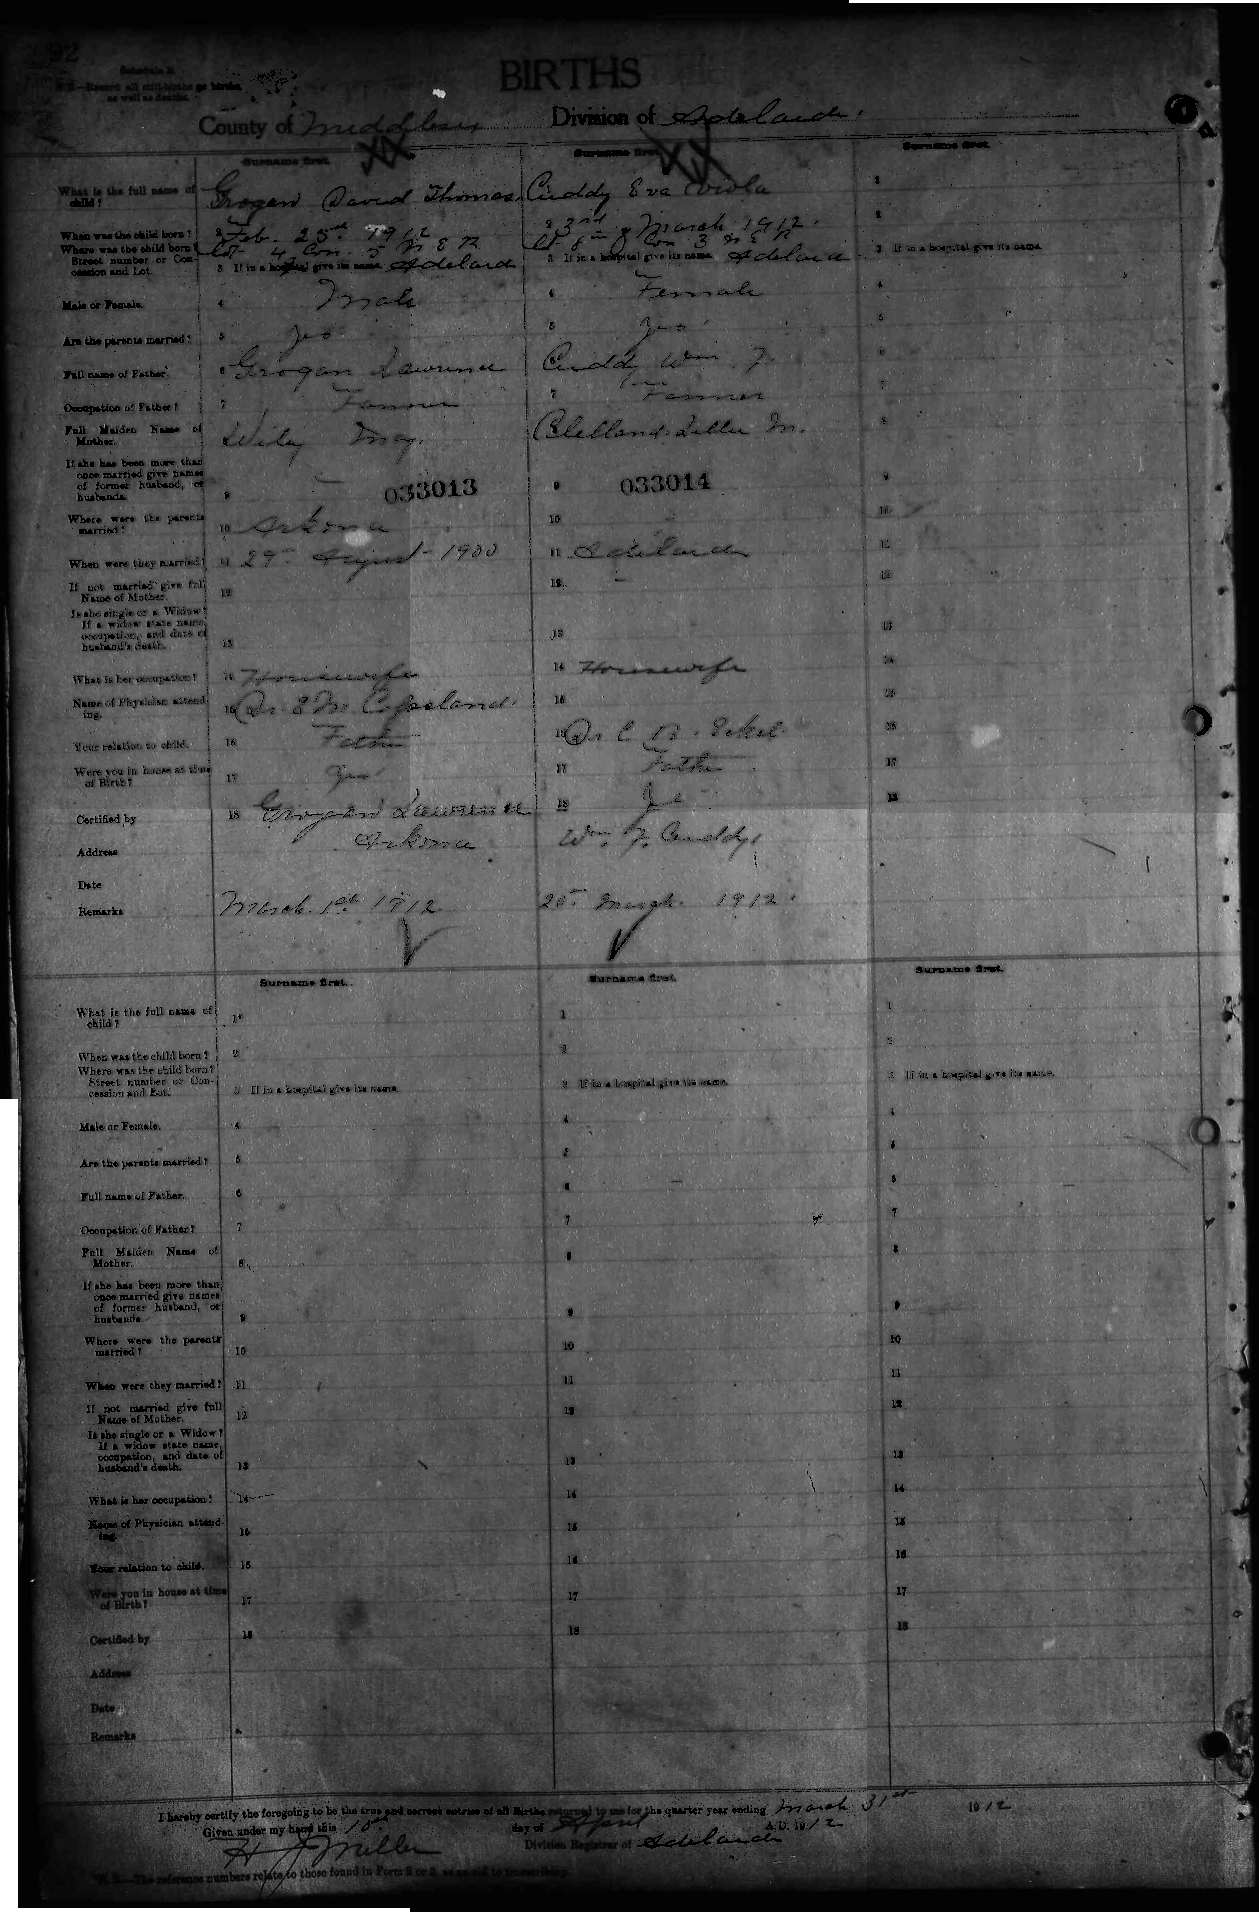 92
Schedule B.
N.B.—Record all still-births as births, as well as deaths.
BIRTHS
County of Middlesex Division of Adelaide.
Surname first. Surname first. Surname first.
What is the full name of child? Grogan David Thomas. Cuddy Eva Viola 1
When was the child born? 2 Feb. 25th 1912 2 3rd March 1912. 2
Where was the child born? Street number or Concession and Lot. Lot 4 Con. 5 N E R Lt 8 Con 3 N E R
3 If in a hospital give its name. Adelaide 3 If in a hospital give its name. Adelaide 3 If in a hospital give its name.
Male or Female. 4 Male 4 Female 4
Are the parents married? 5 Yes 5 Yes 5
Full name of Father. 6 Grogan Lawrence Cuddy Wm F. 6
Occupation of Father? 7 Farmer 7 Farmer 7
Full Maiden Name of Mother. Wiley May. Clelland M. 8
If she has been more than once married give names of former husband, or husbands. 9 033013 9 033014 9
Where were the parents married? 10 Arkona 10 10
When were they married? 11 29th August 1900 11 Adelaide 11
If not married give full Name of Mother. 12 12 - 12
Is she single or a Widow? If a widow state name, occupation, and date of husband's death. 13 13 13
What is her occupation? 14 Housewife 14 Housewife 14
Name of Physician attending. 15 Dr. Copeland. 15
Your relation to child. 16 Father Dr C 16
Were you in house at time of Birth? 17 Yes 17 Father 17
Certified by 18 Grogan Lawrence 18 Yes 18
Address Arkona Wm. F. Cuddy.
Date
Remarks March 1st 1912 25th March 1912.
Surname first. Surname first. Surname first.
What is the full name of child? 1 1 1
When was the child born? 2 2 2
Where was the child born? Street number or Concession and Lot. 3 If in a hospital give its name. 3 If in a hospital give its name. 3 If in a hospital give its name.
Male or Female. 4 4 4
Are the parents married? 5 5 5
Full name of Father. 6 6 6
Occupation of Father? 7 7 7
Full Maiden Name of Mother. 8 8 8
If she has been more than once married give names of former husband, or husbands. 9 9 9
Where were the parents married? 10 10 10
When were they married? 11 11 11
If not married give full Name of Mother. 12 12 12
Is she single or a Widow? If a widow state name, occupation, and date of husband's death. 13 13 13
What is her occupation? 14 14 14
Name of Physician attending. 15 15 15
Your relation to child. 16 16 16
Were you in house at time of Birth? 17 17 17
Certified by 18 18 18
Address
Date
Remarks
I hereby certify the foregoing to be the true and correct entries of all Births returned to me for the quarter year ending March 31st 1912
Given under my hand this 10th day of April A.D. 1912
H J Miller Division Registrar of Adelaide
N.B.—The reference numbers relate to those found in Form 2 or 3, as an aid to transcribing.